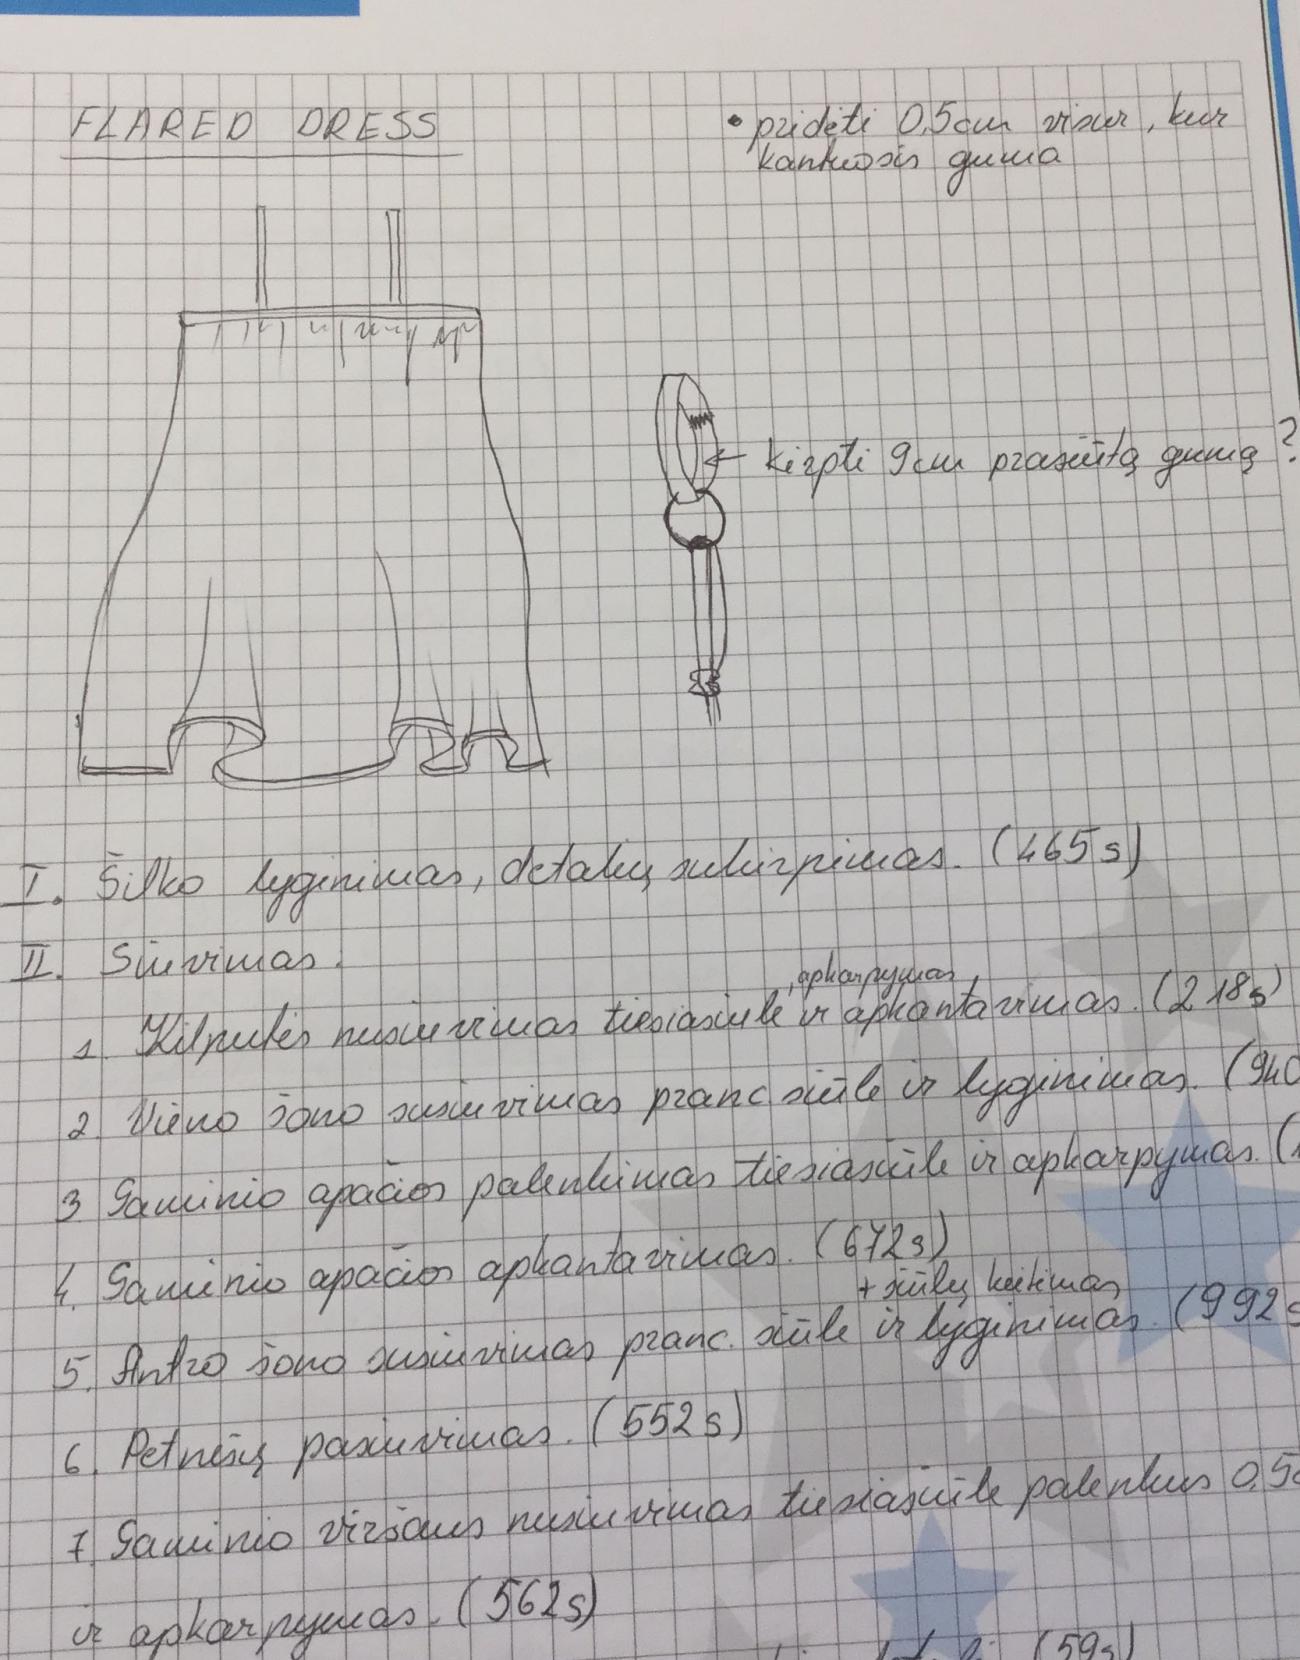 FLARED DRESS
• pridėti 0,5cm visur, kur
kantuosis guma
← kirpti 9cm prasiūtą gumą?
I. Šilko lyginimas, detalių sukirpimas. (465s)
II. Siuvimas.
1. Kilputės nusiuvimas tiesiasiūle, apkarpymas, ir apkantavimas. (218s)
2. Vieno šono susiuvimas pranc siūle ir lyginimas. (940
3 Gaminio apačios palenkimas tiesiasiūle ir apkarpymas. (
4. Gaminio apačios apkantavimas. (672s)
+ siūlų keitimas
5. Antro šono susiuvimas pranc. siūle ir lyginimas. (992s
6. Petnešų pasiuvimas. (552s)
7. Gaminio viršaus nusiuvimas tiesiasiūle palenkus 0,5c
ir apkarpymas. (562s)
(59s)